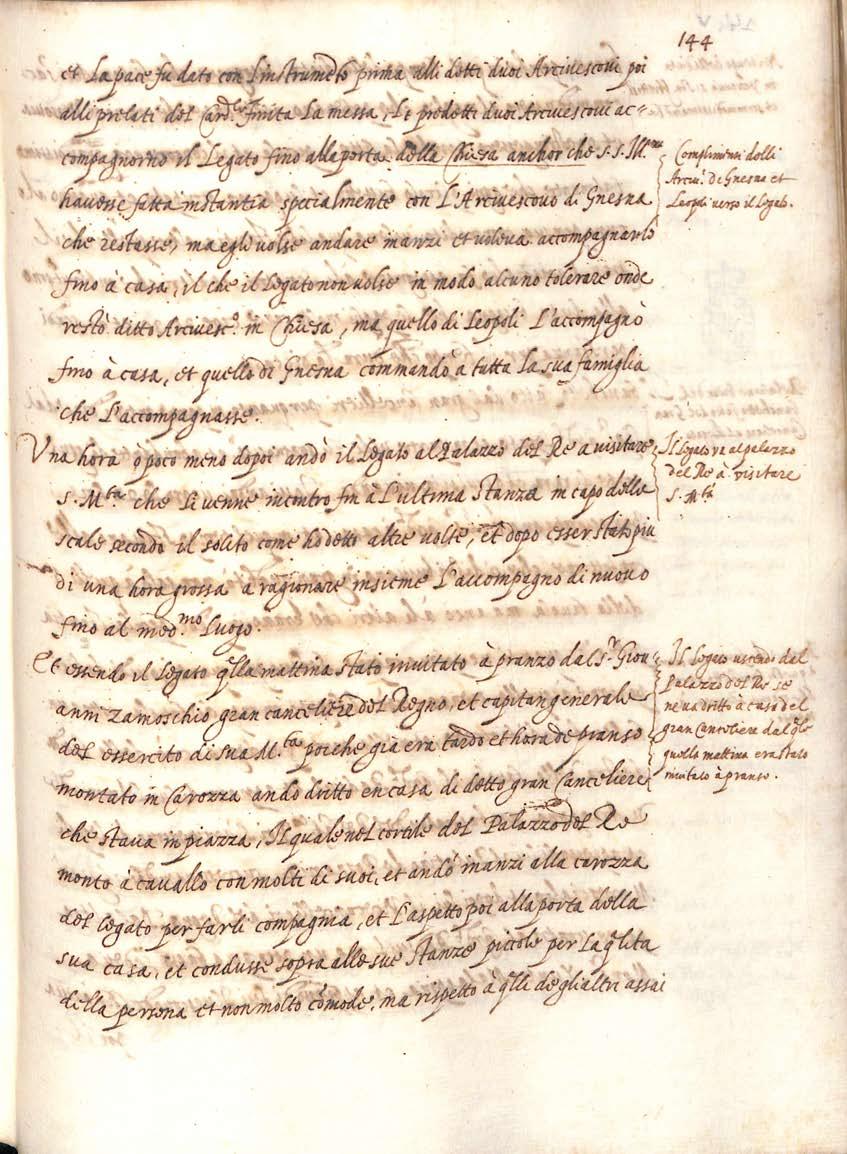 144
et La pace fu dato con l'instrumẽto prima alli detti duoi Arcivescovi poi
alli prelati del Card.le Finita La messa, Le predetti duoi Arcivescovi ac=
compagnorno il Legato fino alla porta della Chiesa anchor che S.S. Ill.ma
havesse fatta instantia specialmente con L'Arcivescovo di Gnesna
che restasse, ma egli volse andare inanzi et voleva accompagnarlo
fino à casa, il che il Legato non volse in modo alcuno tolerare onde
restò ditto Arcivesc.o in Chiesa, ma quello di Leopoli L'accompagnò
fino à casa, et quello di Gnesna commandò a tutta La sua famiglia
che L'accompagnasse.
Complimenti delli
Arciv.i di Gnesna et
Leopoli verso il Legato.
Una hora ò poco meno dopoi andò il Legato al Palazzo del Re a visitare
S. M.tà che li venne incontro fin à L'ultima stanza in capo della
scale secondo il solito come ho detto altre volte, et dopo esser stato piu
di una hora grossa a ragionare insieme L'accompagno di nuovo
fino al med.mo Luogo.
Il Legato va al palazzo
del Re à visitare
S. M.tà
Et essendo il Legato q̃lla mattina stato invitato à pranzo dal S.r Giou
anni Zamoschio gran canceliere del Regno, et capitan generale
del essercito di sua M.tà poiche già era tardo et hora de pranso
montato in Carozza andò dritto en casa di detto gran Canceliere
che stava in piazza, Il quale nel cortile del Palazzo del Re
monto à cavallo con molti di suoi, et andò inanzi alla carozza
del legato per farli compagnia, et L'aspetto poi alla porta della
sua casa, et condusse sopra alle sue stanze piccole per La q̃lita
della persona et non molto cõmode, ma rispetto à q̃lli degli altri assai
Il Legato uscendo dal
Palazzo del Re se
ne va dritto à casa del
gran Canceliere dal q̃le
quella mattina era stato
invitato à pranso.